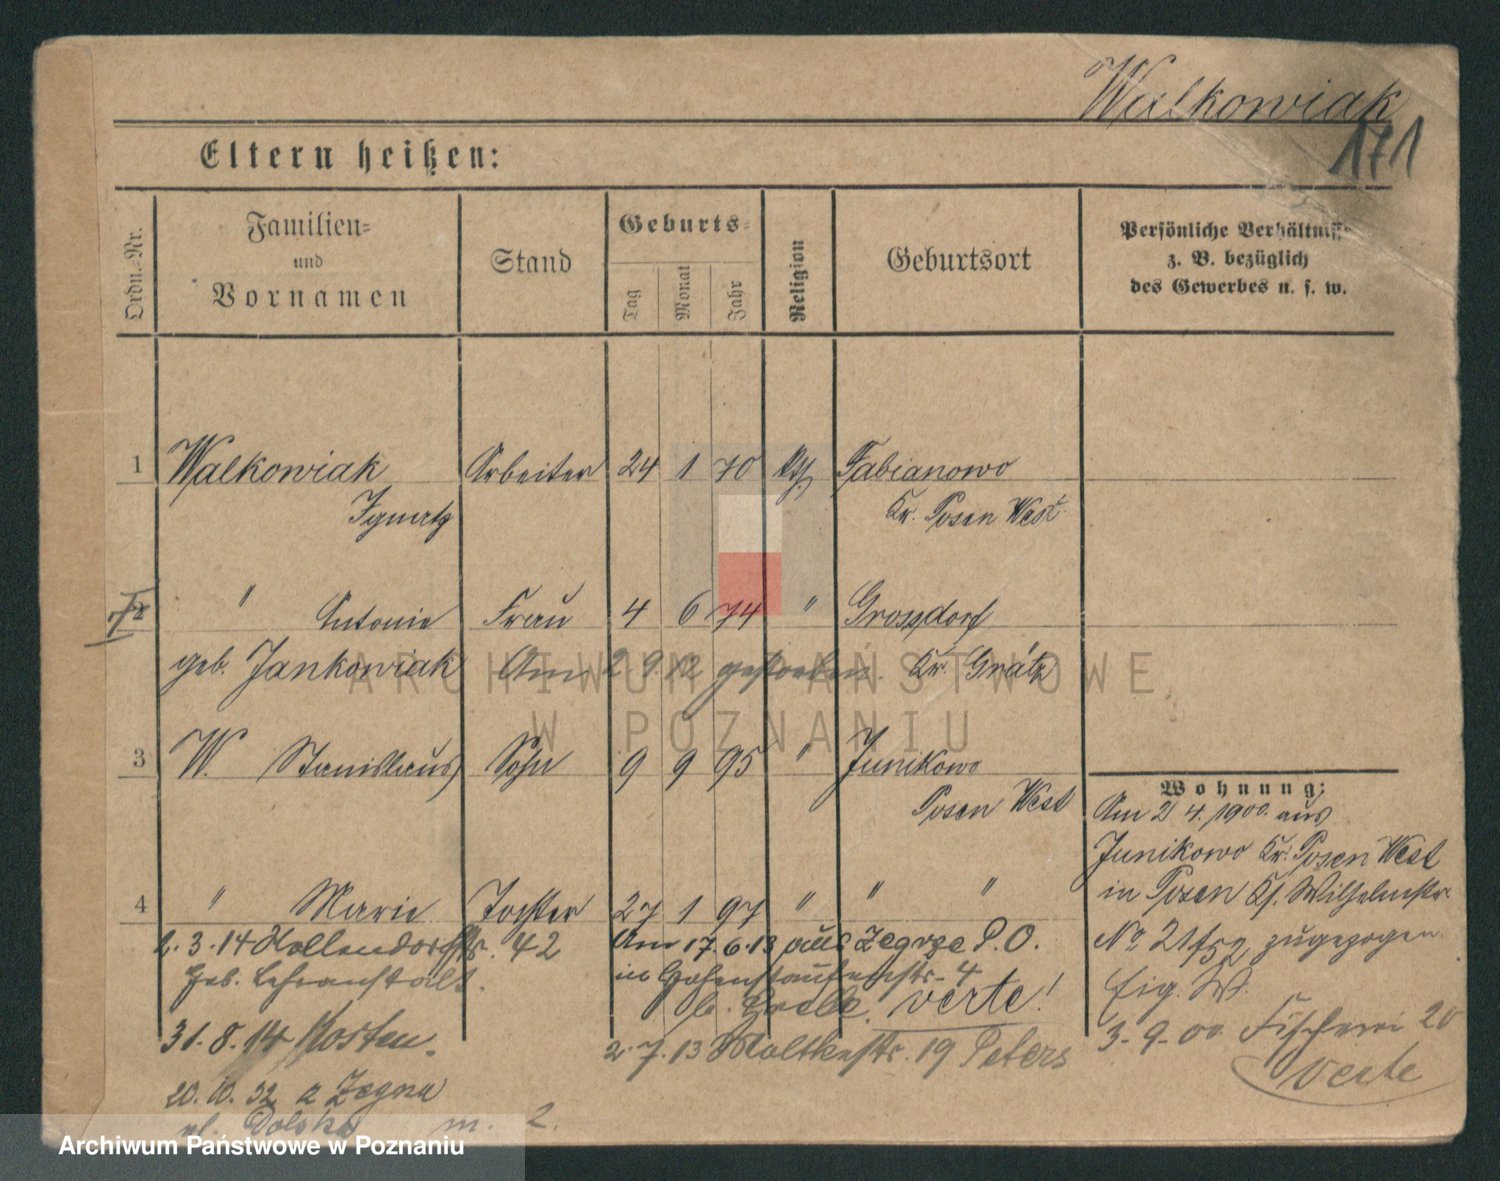 Walkowiak
171
Eltern heißen:
Ordn.-Nr.
Familien-
und
Vornamen
Stand
Geburts-
Tag
Monat
Jahr
Religion
Geburtsort
Persönliche Verhältnisse
z. B. bezüglich
des Gewerbes u. s. w.
1 Walkowiak Arbeiter 24 1 70 kth. Fabianowo
Ignatz Kr. Posen West
2 " Antonie Frau 4 6 74 " Grossdorf
geb. Jankowiak Am 2. 9. 12 gestorben. Kr. Grätz
3 W. Stanislaus Sohn 9 9 95 " Junikowo
Posen West
4 " Marie Tochter 27 1 97 " " "
2. 3. 14 Hollendorfstr. 42
Heb. Lehranstalt.
31. 8. 14 Kosten.
20. 10. 32 z Żegna
m. 2.
Am 17. 6. 13 aus Zegrze P. O.
in Hohenstaufenstr. 4
b. verte!
2. 7. 13 Moltkestr. 19 Peters
Wohnung:
Am 2 4. 1900. aus
Junikowo Kr. Posen West
in Posen Kl. Wilhelmstr.
No 21/52 zugezogen.
Eig. W.
3. 9. 00. Fischerei 20
verte
ARCHIWUM PAŃSTWOWE
W POZNANIU
Archiwum Państwowe w Poznaniu